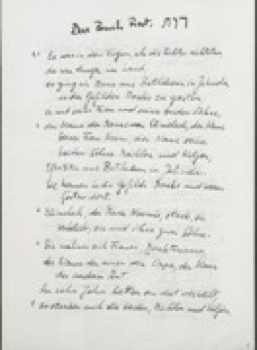 Das Buch Rut.
Es war in den Tagen, als die Richter richteten,
da war Hunger im Land,
so ging ein Mann aus Bethlehem in Jehuda,
in den Gefilden Moabs zu gasten,
er und seine Frau und seine beiden Söhne.
der Name des Mannes war Elimelech, der Name
seiner Frau Noomi, der Name seiner
beiden Söhne Machlon und Kiljon,
aus Bethlehem in Jehuda.
Sie kamen in die Gefilde Moabs und waren
dort.
Elimelech, der Mann Noomis, starb, sie
und ihre zwei Söhne.
Sie nahmen sich Frauen,
der Name der einen war Orpa, der Name
der andern Rut
zehn Jahre hatten sie dort
da starben auch die beiden, Machlon und Kiljon,